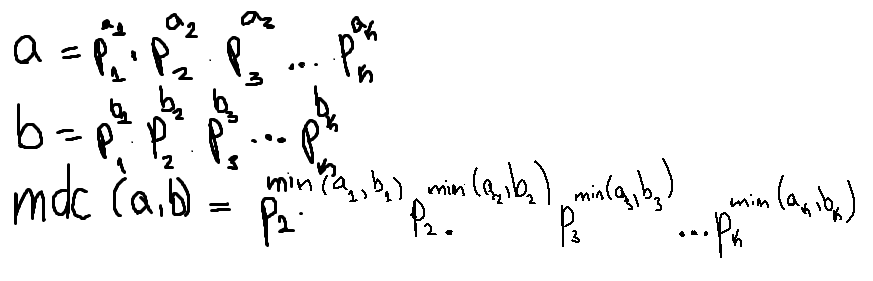 a = p₁^a₁ · p₂^a₂ · p₃^a₂ ... pₖ^aₖ
b = p₁^b₁ · p₂^b₂ · p₃^b₃ ... pₖ^bₖ
mdc (a,b) = p₁^min(a₁,b₁) · p₂^min(a₂,b₂) · p₃^min(a₃,b₃) ... pₖ^min(aₖ,bₖ)